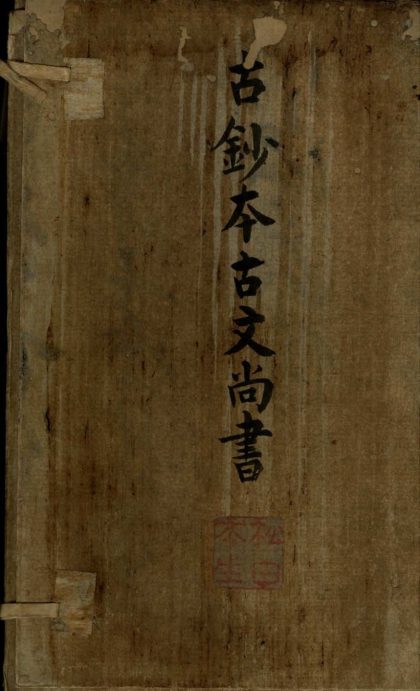 古鈔本古文尚書